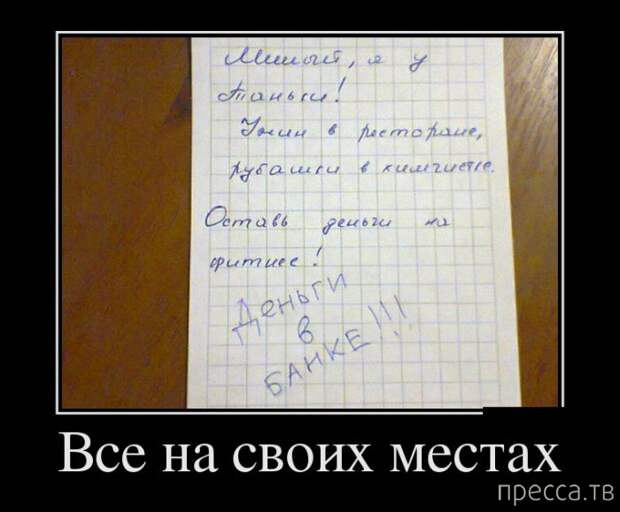 Милый, я у
Таньки!
Ужин в ресторане,
рубашки в химчистке.
Оставь деньги на
фитнес!
ДЕНЬГИ
В
БАНКЕ!!!
Все на своих местах
пресса.тв